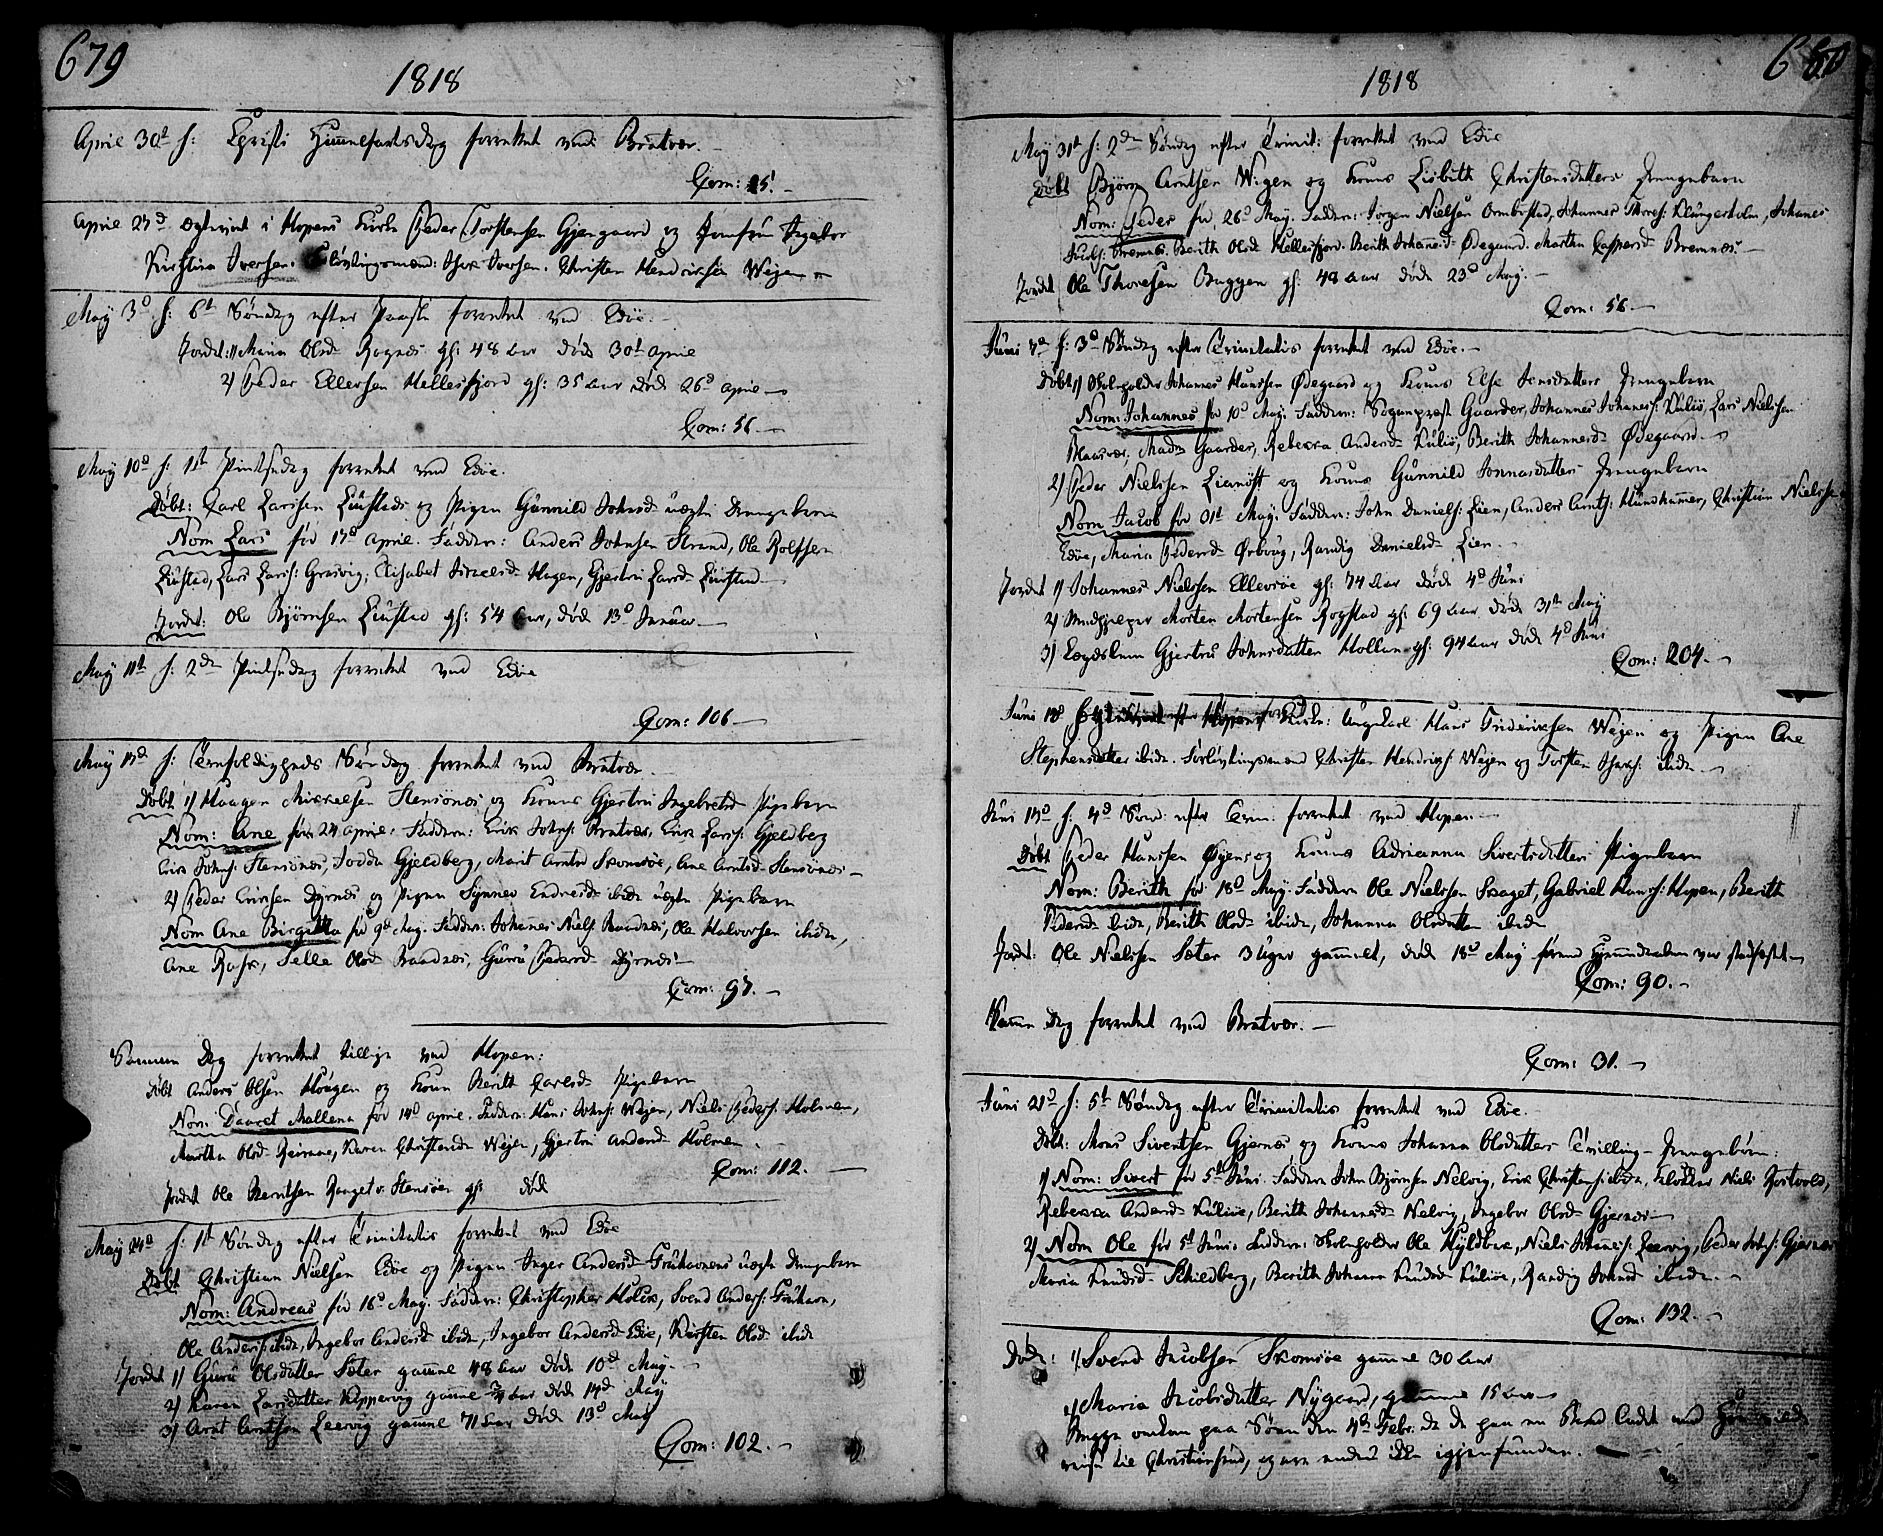 679
1818
Aprile 30t f: Christi Himmelfartsdag forrettet ved Bratvær.
Com: 15.
Aprile 23d Egteviet i Hopens Kirke Peder Torstensen Gjengaard og Jomfru Ingebor
Kirstina Iversen. Forlovingsmænd: Iversen. Christen Hendriksen Weyen
May 3d f: 6t Søndag efter Paaske forrettet ved Edøe.
Jordet: 1/ Maria Olsd Rognæs gl: 48 Aar død 30t Aprile
2/ Peder Ellersen Hellesfjord gl: 35 Aar død 26d Aprile
Com: 56.
May 10d f: 1t Pintsedag forrettet ved Edøe.
Døbt: Carl Larssen Liustad og Pigen Gunnild Johnsd uægte Drengebarn
Nom Lars fød 17d Aprile. Faddere: Anders Johnsen Strand, Ole Rolfsen
Liustad, Lars Larss: Grasvig, Elisabet Israelsd Hagen, Gjertru Larsd Liustad
Jordet: Ole Bjørnsen Liustad gl: 54 Aar, død 13d Januar
May 11t f: 2den Pintsedag forrettet ved Edøe
Com: 106
May 17d f: Trefoldigheds Søndag forrettet ved Bratvær
Døbt 1/ Haagen Mikkelsen Stensønæs og Kones Gjertru Ingebretsd Pigebarn
Nom: Ane fød 24 Aprile. Faddere: Erik Johns: Bratvær, Erik Larss: Gjeldberg
Erik Johns: Stensønæs, Gjeldberg, Marit Arntsd Skomsøe, Ane Arntsd Stensønæs
2/ Peder Erichsen Dyrnæs og Pigen Synnev Endresd ibid: uægte Pigebarn
Nom Ane Birgitta fød 9d May. Faddere: Johannes Niels: Raadnæs, Ole Halvorsen ibidm,
Ane Rosk, Selle Olsd Raadnæs, Guru Pedersd Dyrnæs
Com: 97.
Samme Dag forrettet tillige ved Hopen:
Døbt Anders Olsen Hougen og Kone Berith Carlsd Pigebarn
Nom: Daaret Mallena fød 14d Aprile. Faddere: Hans Johns: Weyen, Niels Peders: Holmen,
Martha Olsd Reirane, Karen Christensd Weyen, Gjertru Andersd Holmen
Com: 112.
Jordet Ole Berntsen Stensøen gl: død
May 24d f: 1t Søndag efter Trinitatis forrettet ved Edøe
Døbt Christian Nielsen Edøe og Pigen Inger Andersd Fruhavnens uægte Drengebarn
Nom: Andreas fød 16d May. Faddere: Christopher Holck, Svend Anders: Fruhavn,
Ole Anders: ibidm, Ingebor Andersd ibid, Ingebor Andersd Edøe, Kirsten Olsd ibid
Jordet 1/ Guru Olsdatter Sæter gamel 48 Aar død 10d May.
2/ Karen Larsdatter Kippervig gamel 3/4 Aar død 14d May
3/ Arnt Arntsen Leervig gamel 71 Aar død 13d May
Com: 102.
680
1818
May 31t f: 2den Søndag efter Trinit: forrettet ved Edøe
Døbt Bjørn Arntsen Wigen og Kones Lisbeth Christensdatters Drengebarn
Nom: Peder fød 26d May. Faddere: Jørgen Nielsen Ormbostad, Johannes Thores: Klungerholm, Johanes
Jacobs: Bremnes. Berith Olsd Hellesfjord. Berith Johannesd Ødegaard. Martha Caspersd Bremnæs.
Jordet Ole Thoresen Buggen gl: 48 Aar døde 23d May.
Com: 56
Juni 7d f: 3d Søndag efter Trinitatis forrettet ved Edøe.
Døbt 1/ Johannes Hanssen Ødegaard og Kones Else Jensdatters Drengebarn
Nom: Johannes fød 10d May. Faddere: Sogenpræst Gaarder, Johannes Johaness: Kuløe, Lars Nielssen
Maasvær, Madm Gaarder, Rebekka Andersd Kuløe, Berith Johannesd Ødegaard
2/ Peder Nielssen Lianøst og Kones Gunnild Jonnasdatters Drengebarn
Nom Jacob fød 31t May. Faddere: John Daniels: Lien, Anders Arnts: Hundhamer, Christian Nielssen
Edøe, Maria Pedersd Ørbøug, Randig Danielsd Lien.
Jordet 1/ Johannes Nielssen Ellevsøe gl: 74 Aar død 4d Juni
2/ Morten Mortensen Rogstad gl: 69 Aar død 31t May
3/ Lægdslem Gjertru Johnsdatter Hollan gl: 94 Aar død 4d Juni
Com: 204.
Juni Hopens Kirke: Ungkarl Hans Friderichsen Weyen og Pigen Ane
Stephensdatter ibidm. Forlovingsmænd Christen Hendriks: Weyen og Torsten ibidm.
Juni 14d f: 4d Sønd: efter Trin: forrettet ved Hopen
Døbt Peder Hanssen Øyens og Kones Adrianna Sivertsdatters Pigebarn
Nom: Berith fød 18d May. Faddere Ole Nielssen Skaget, Gabriel Hanss: Hopen, Berith
Pedersd ibidm, Berith Olsd ibidm, Johanna Olsdatter ibid
Jordet: Ole Nielssen Sæter 3 Uger gammelt, død 18d May førend Hjemmedaaben var stadfæstet
Com: 90.
Samme Dag forrettet ved Bratvær.
Com: 31.
Juni 21d f: 5t Søndag efter Trinitatis forrettet ved Edøe.
Døbt: Mons Sivertsen Gjernæs og Kones Johanna Olsdatters Tvilling-Drengebørn:
1/ Nom: Sivert fød 5t Juni. Faddere John Bjørnsen Nelvig, Erik Christens: ibidm, Klokker Niels Rostvold,
Rebekka Andersd Kuløe, Berith Johannesd Nelvig, Ingebor Olsd Gjernæs
2/ Nom Ole fød 5t Juni. Faddere: Ole Kyldbek, Niels Johannes: Leervig, Peder Johs: Gjernæs
Maria Knudsd Skiedberg, Berith Johanna Knudsd Kuløe, Randig Johnsd ibidm.
Com: 132.
Døde: 1/ Svend Jacobsen Skomsøe gamel 30 Aar
2/ Maria Jacobsdatter Nygaard, gamel 15 Aar
Begge omkom paa Søen den 4d Febr: da de paa en Baad ved
reise til Christiansund, og ere endnu ikke igjenfunden.